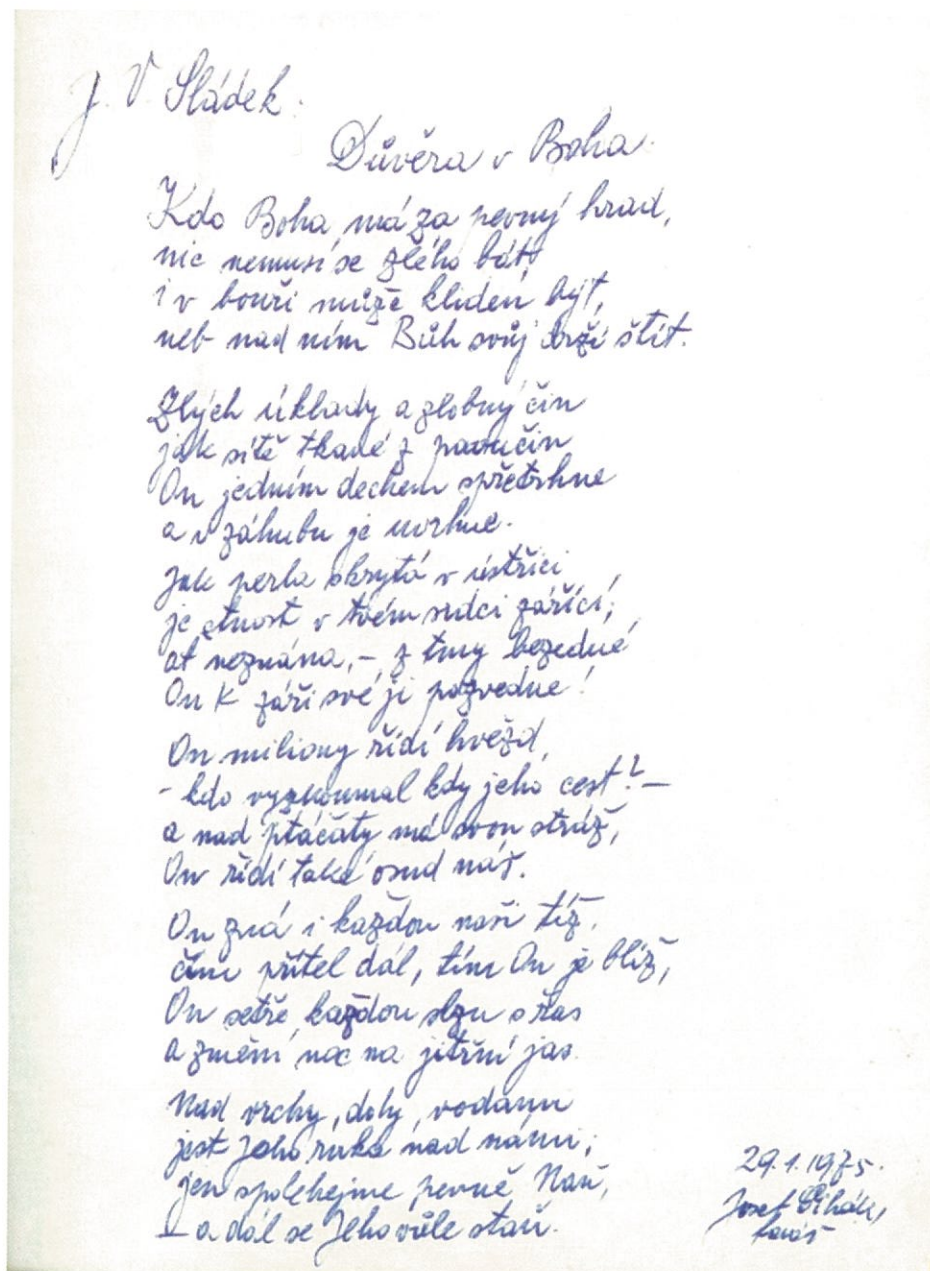 J. V. Sládek.
Důvěra v Boha.
Kdo Boha má za pevný hrad,
nic nemusí se zlého bát,
i v bouři může kliden být,
neb nad ním Bůh svůj drží štít.
Zlých úklady a zlobný čin
jak sítě tkané z pavučin
On jedním dechem zpřetrhne
a v záhubu je uvrhne.
Jak perla skrytá v ústřici
je ctnost v tvém srdci zářící;
ať neznána, – z tmy bezedné
On k záři své ji pozvedne!
On miliony řídí hvězd,
– kdo vyzkoumal kdy jeho cest? –
a nad ptáčaty má svou stráž,
On řídí také osud náš.
On zná i každou naši tíž,
čím přítel dál, tím On je blíž,
On setře každou slzu s řas
a změní noc na jitřní jas.
Nad vrchy, doly, vodami
jest Jeho ruka nad námi;
jen spoléhejme pevně Naň,
– a dál se Jeho vůle staň.
29.1.1975.
Josef